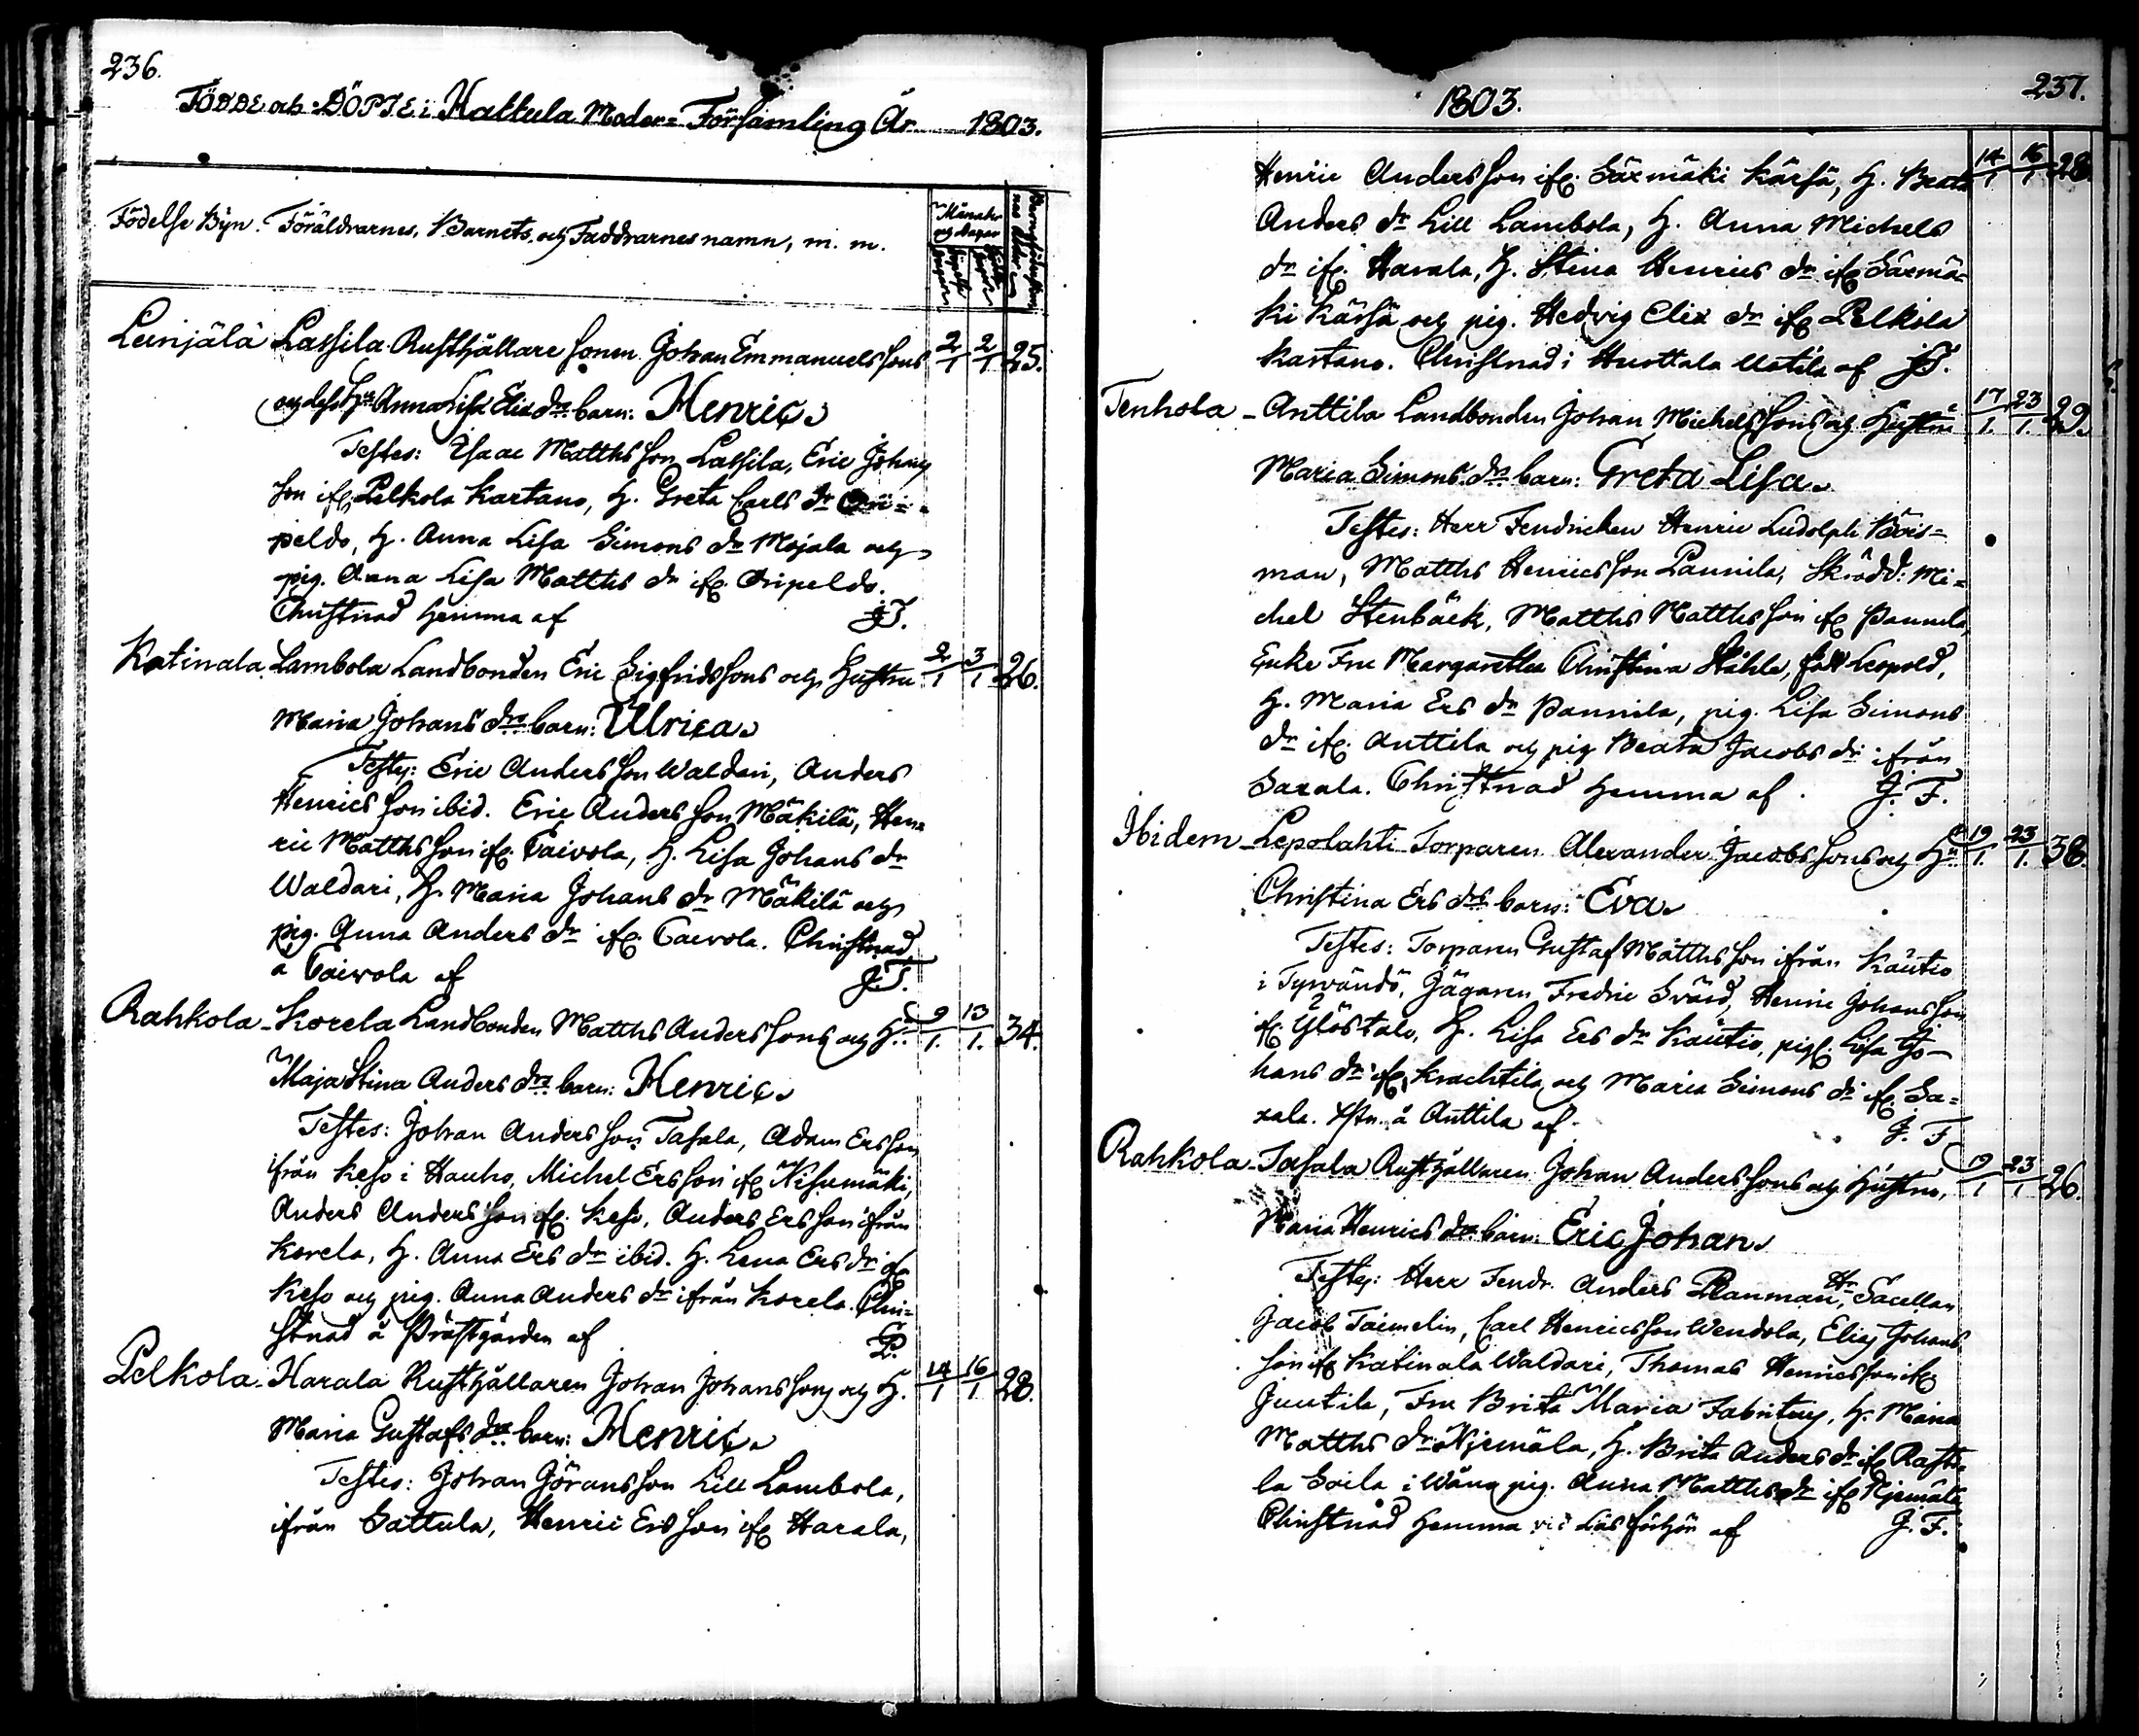 236.
FÖDDE och DÖPTE i Hattula Moder= Församling År 1803.
Födelse Byn. Föräldrarnes, Barnets och Faddrarnes namn, m. m.
Månader och Dagar
Leinjälä Lassila Rusthållare sonen Johan Emmanuelssons 2/1 2/1 25.
och dess Hu Anna Lisa Elix drs barn: Henric
Testes: Isaac Matthsson Lassila, Eric Johans
son ifr. Pelkola Kartano, H. Greta Carls dr Ori=
peldo, H. Anna Lisa Simons dr Mojala och
pig. Anna Lisa Matths dr ifr. Oripeldo.
Christnad hemma af J.F.
Katinala Lambola Landbonden Eric Sigfridssons och Hustru 2/1 3/1 26.
Maria Johans drs barn: Ulrica
Testes: Eric Andersson Waldari, Anders
Henricsson ibid. Eric Andersson Mäkilä, Hen=
ric Matthsson ifr. Taivola, H. Lisa Johans dr
Waldari, H. Maria Johans dr Mäkilä och
pig. Anna Anders dr ifr. Taivola. Christnad
å Taivola af J.F.
Rahkola Korela Landbonden Matths Anderssons och H. 9/1. 13/1. 34.
Maja Stina Anders drs barn: Henric
Testes: Johan Andersson Tasala, Adam Ersson
ifrån Keso i Hauho, Michel Ersson ifr. Nihumäki,
Anders Andersson ifr. Keso, Anders Ersson ifrån
Korela, H. Anna Ers dr ibid. H. Lena Ers dr ifr
Keso och pig. Anna Anders dr ifrån Korela. Chri=
stnad å Prästgården af
Pelkola Harala Rusthållaren Johan Johanssons och H. 14/1 16/1 28.
Maria Gustafs drs barn: Henric
Testes: Johan Göransson Lill Lambola,
ifrån Sattula, Henric Ersson ifr Harala,
1803. 237.
Henric Andersson ifr. Särmäki Kärsä, H. Beata 14/1 16/1 28.
Anders dr Lill Lambola, H. Anna Michels
dr ifr. Harala, H. Stina Henrics dr ifr Särmä=
ki Kärsä och pig. Hedvig Elix dr ifr Pelkola
Kartano. Christnad i Hurttala Uotila af J.F.
Tenhola Anttila Landbonden Johan Michelssons och Hustru 17/1. 23/1. 29.
Maria Simons drs barn: Greta Lisa
Testes: Herr Fendricken Henric Ludolph Bois=
man, Matths Henricsson Pannila, Skrädd: Mi=
chel Stenbäck, Matths Matthsson ifr Pannila,
Enke Fru Margaretha Christina Ståhle, född Leopold,
H. Maria Ers dr Pannila, pig. Lisa Simons
dr ifr. Anttila och pig Beata Jacobs dr ifrån
Saxala. Christnad hemma af J. F.
Ibidem Lepolahti Torparen Alexander Jacobssons och Hu 19/1. 23/1. 38.
Christina Ers drs barn: Eva
Testes: Torparen Gustaf Matthsson ifrån Kautio
i Tyrvändö, Jägaren Fredric Svärd, Henric Johansson
ifr. Ylöstalo, H. Lisa Ers dr Kautio, pig. Lisa Jo-
hans dr ifr. Krachtila och Maria Simons dr ifr. Sa=
xala. Xstn. å Anttila af J. F.
Rahkola Tasala Rusthållaren Johan Anderssons och Hustru, 19/1 23/1 26.
Maria Henrics drs barn: Eric Johan
Testes: Herr Fendr. Anders Planman, Hr Sacellan
Jacob Taimelin, Carl Henricsson Wendola, Elias Johans
son ifr Katinala Waldari, Thomas Henricsson ifr
Juutila, Fru Brita Maria Fabritius, H. Maria
Matths dr Njemäla, H. Brita Anders dr ifr
la Soila i Wåna pig. Anna Matths dr ifr Njemäla
Christnad hemma vid Läsförhör af J. F.